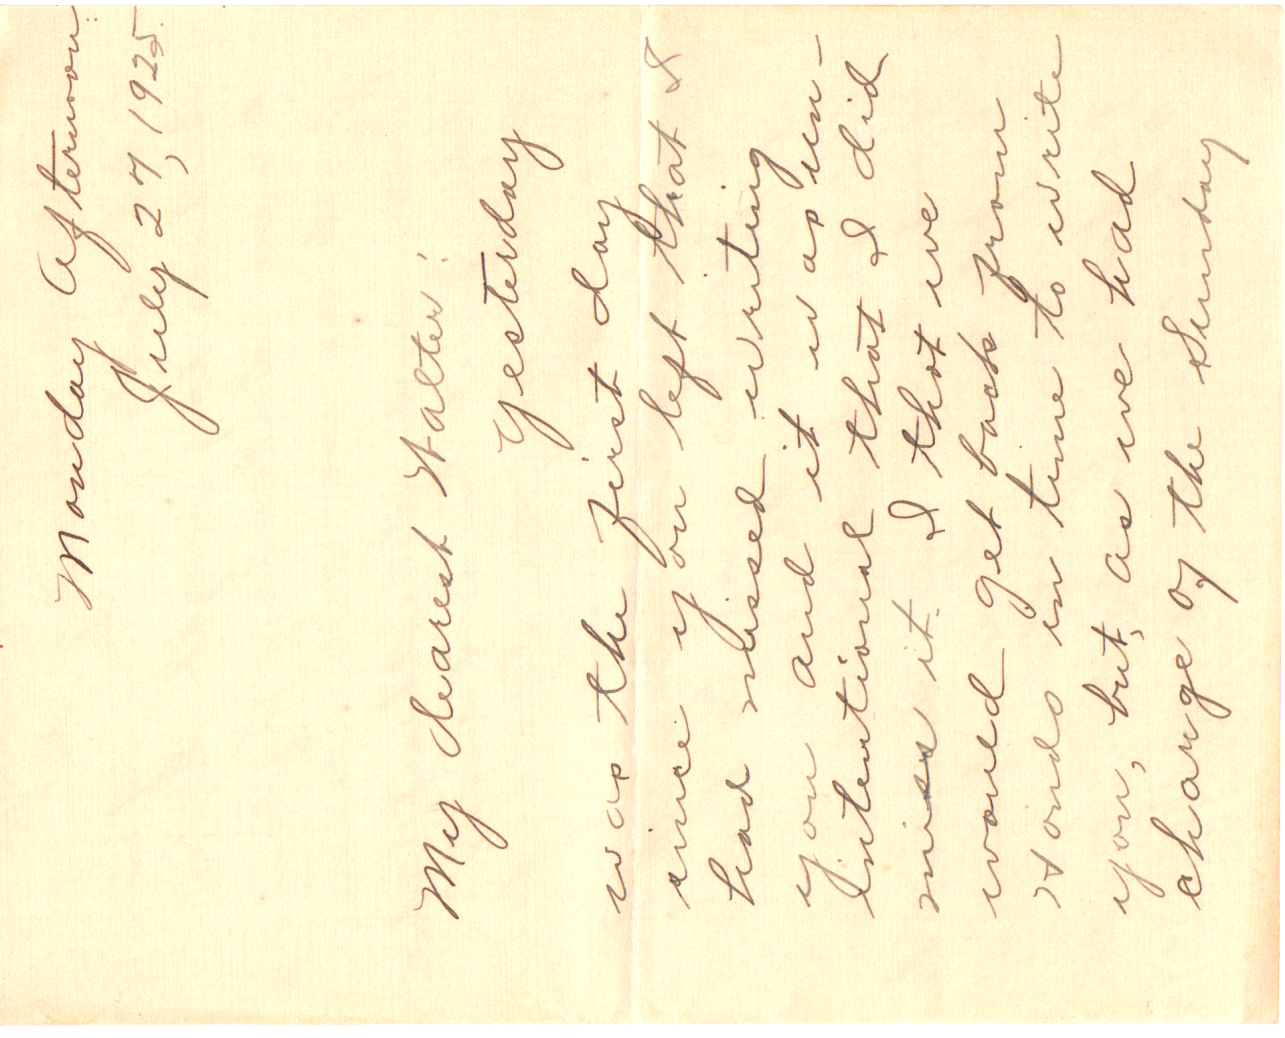 Monday Afternoon.
July 27, 1925.
My dearest Walter:
Yesterday
was the first day
since you left that I
had missed writing
you and it was un-
intentional that I did
miss it. I thot we
would get back from
in time to write
you, but, as we had
charge of the Sunday